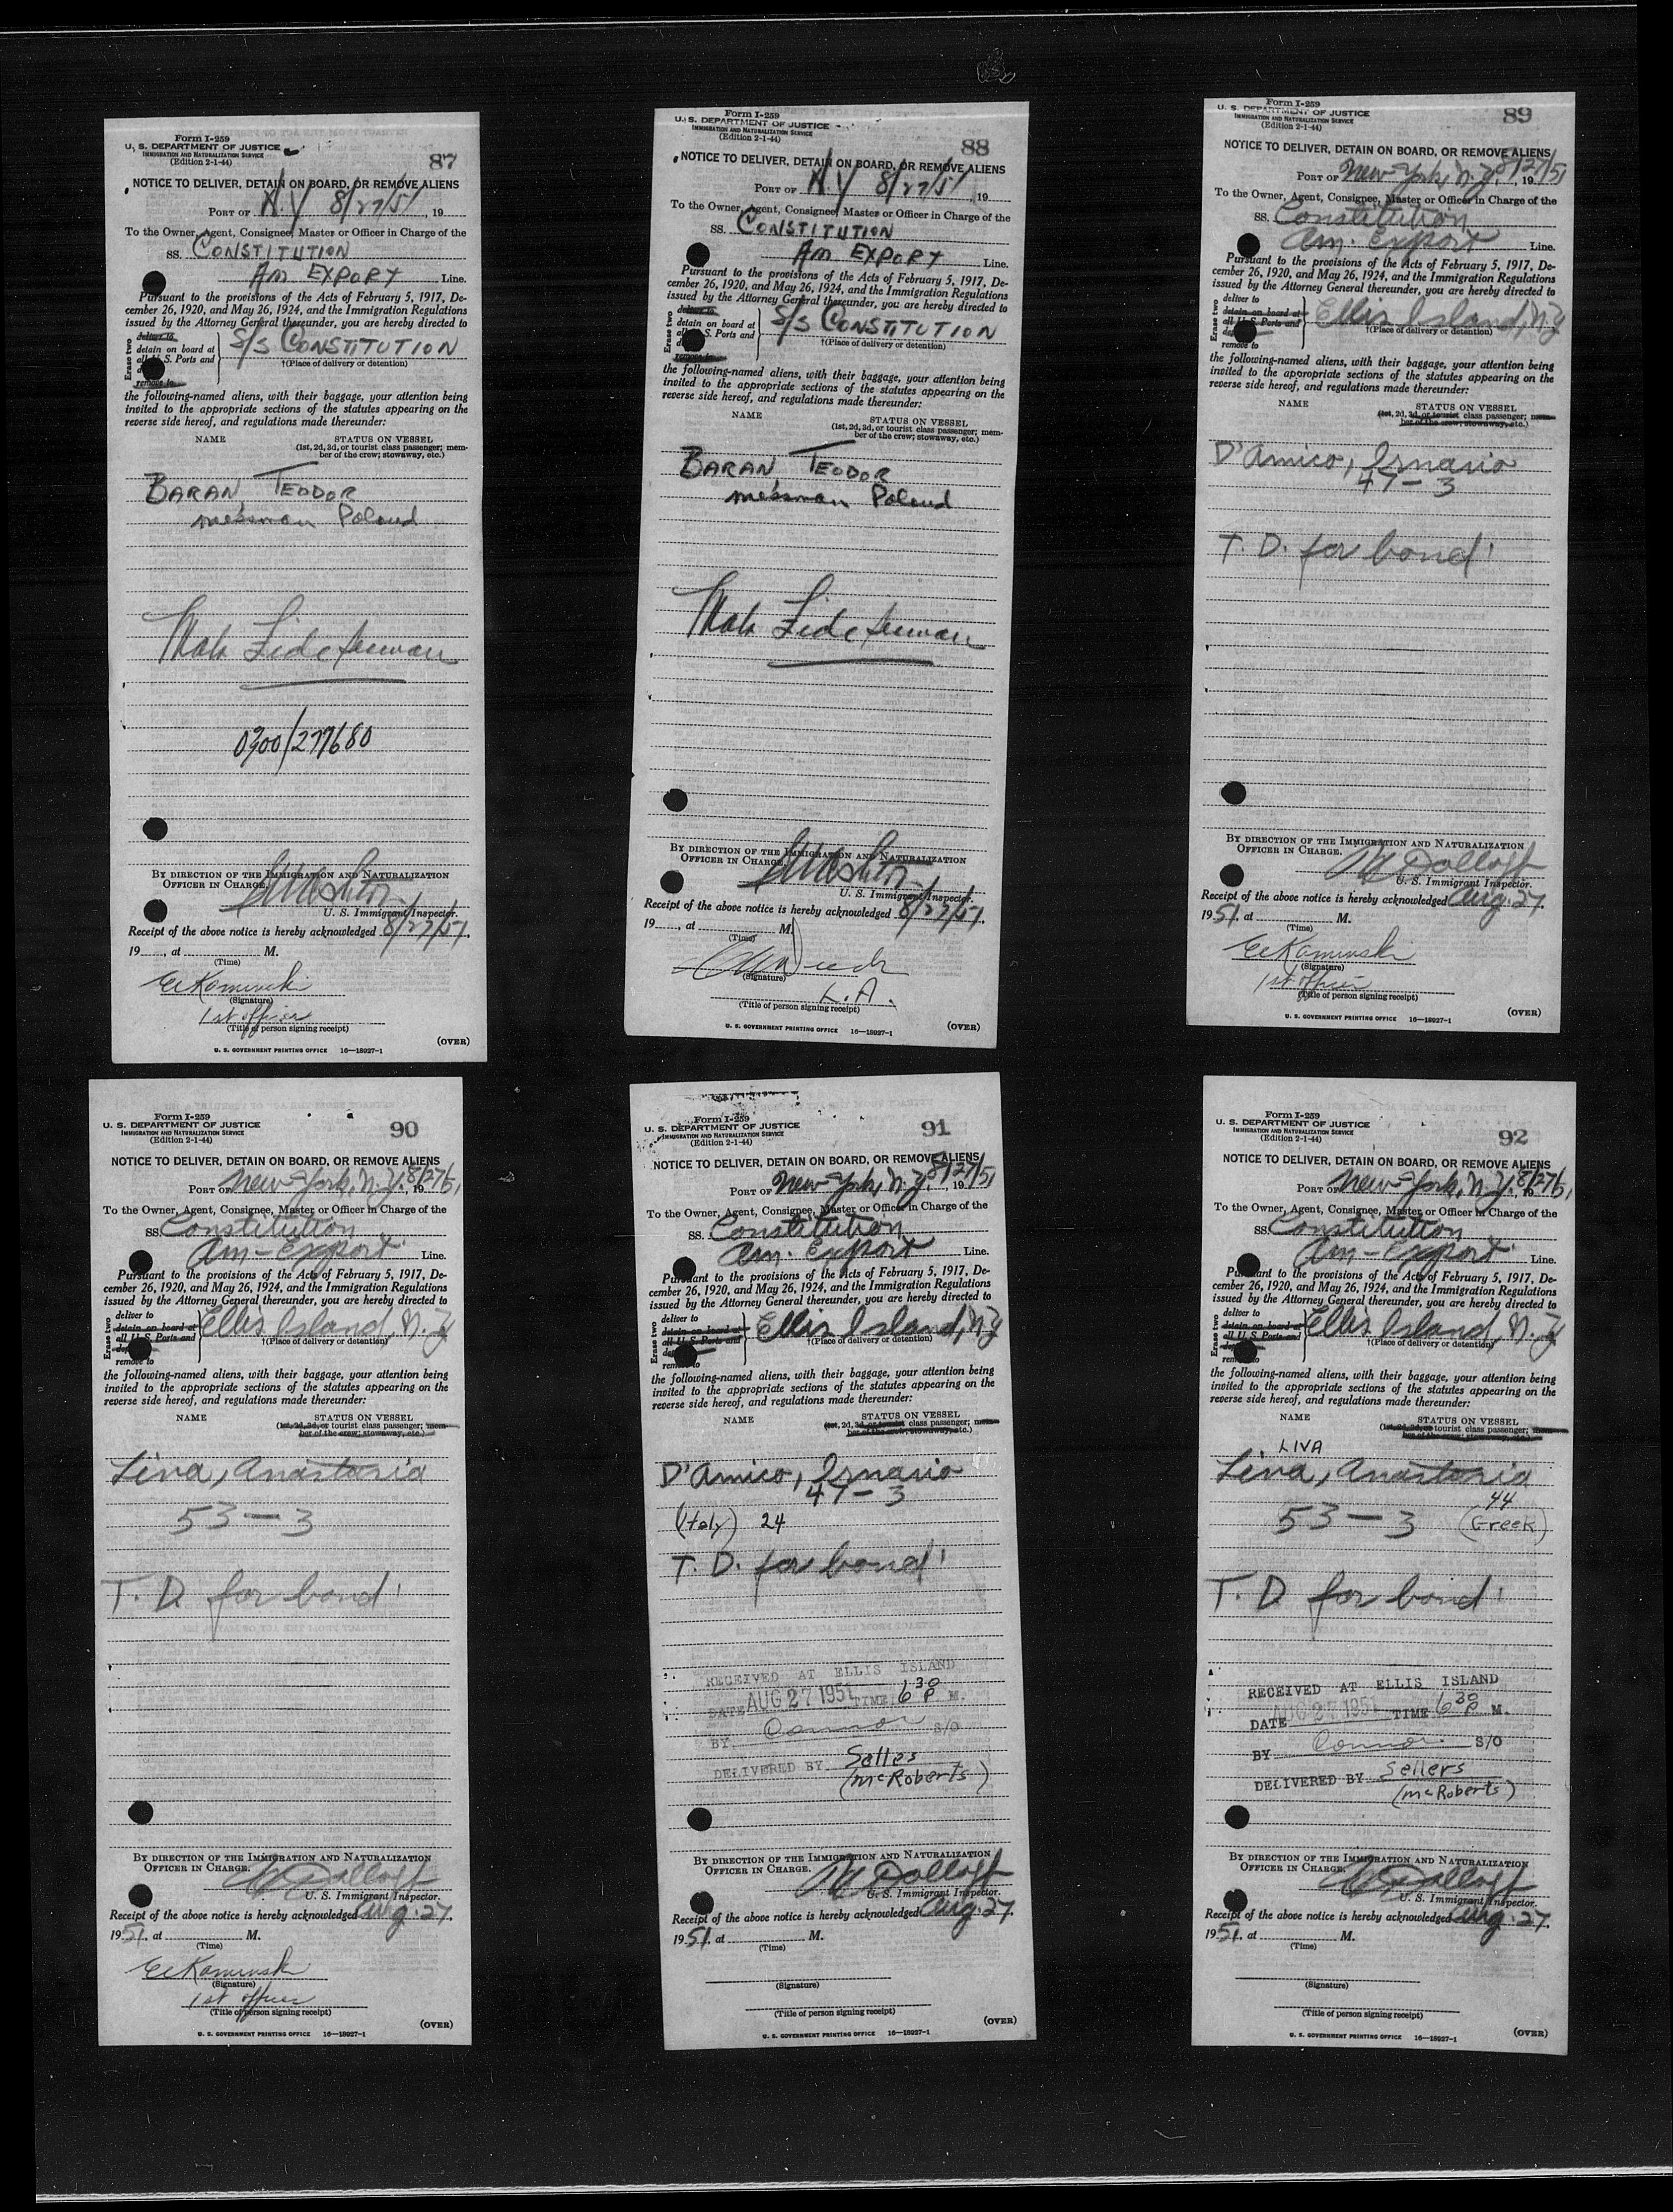 Form I-259
U. S. DEPARTMENT OF JUSTICE
IMMIGRATION AND NATURALIZATION SERVICE
(Edition 2-1-44)
87
NOTICE TO DELIVER, DETAIN ON BOARD, OR REMOVE ALIENS
PORT OF N.Y 8/27/51, 19
To the Owner, Agent, Consignee, Master or Officer in Charge of the
SS. CONSTITUTION
AM EXPORT Line.
Pursuant to the provisions of the Acts of February 5, 1917, De-
cember 26, 1920, and May 26, 1924, and the Immigration Regulations
issued by the Attorney General thereunder, you are hereby directed to
Erase two
deliver to
detain on board at
all U. S. Ports and
remove to
S/S CONSTITUTION
†(Place of delivery or detention)
the following-named aliens, with their baggage, your attention being
invited to the appropriate sections of the statutes appearing on the
reverse side hereof, and regulations made thereunder:
NAME STATUS ON VESSEL
(1st, 2d, 3d, or tourist class passenger; mem-
ber of the crew; stowaway, etc.)
BARAN, TEODOR
messman Poland
Mala Fide Seaman
0300/277680
BY DIRECTION OF THE IMMIGRATION AND NATURALIZATION
OFFICER IN CHARGE.
U. S. Immigrant Inspector.
Receipt of the above notice is hereby acknowledged 8/27/51,
19, at M.
(Time)
EeKaminski
(Signature)
1st officer
(Title of person signing receipt)
U. S. GOVERNMENT PRINTING OFFICE 16—18927-1
(OVER)
Form I-259
U. S. DEPARTMENT OF JUSTICE
IMMIGRATION AND NATURALIZATION SERVICE
(Edition 2-1-44)
88
NOTICE TO DELIVER, DETAIN ON BOARD, OR REMOVE ALIENS
PORT OF N.Y 8/27/51, 19
To the Owner, Agent, Consignee, Master or Officer in Charge of the
SS. CONSTITUTION
AM EXPORT Line.
Pursuant to the provisions of the Acts of February 5, 1917, De-
cember 26, 1920, and May 26, 1924, and the Immigration Regulations
issued by the Attorney General thereunder, you are hereby directed to
Erase two
deliver to
detain on board at
all U. S. Ports and
remove to
S/S CONSTITUTION
†(Place of delivery or detention)
the following-named aliens, with their baggage, your attention being
invited to the appropriate sections of the statutes appearing on the
reverse side hereof, and regulations made thereunder:
NAME STATUS ON VESSEL
(1st, 2d, 3d, or tourist class passenger; mem-
ber of the crew; stowaway, etc.)
BARAN, TEODOR
messman Poland
Mala Fide Seaman
BY DIRECTION OF THE IMMIGRATION AND NATURALIZATION
OFFICER IN CHARGE.
U. S. Immigrant Inspector.
Receipt of the above notice is hereby acknowledged 8/27/51,
19, at M.
(Time)
(Signature)
L.A.
(Title of person signing receipt)
U. S. GOVERNMENT PRINTING OFFICE 16—18927-1
(OVER)
Form I-259
U. S. DEPARTMENT OF JUSTICE
IMMIGRATION AND NATURALIZATION SERVICE
(Edition 2-1-44)
89
NOTICE TO DELIVER, DETAIN ON BOARD, OR REMOVE ALIENS
PORT OF New York, N.Y. 8/27/51, 19
To the Owner, Agent, Consignee, Master or Officer in Charge of the
SS. Constitution
Am. Export Line.
Pursuant to the provisions of the Acts of February 5, 1917, De-
cember 26, 1920, and May 26, 1924, and the Immigration Regulations
issued by the Attorney General thereunder, you are hereby directed to
Erase two
deliver to
detain on board at
all U. S. Ports and
remove to
Ellis Island, N.Y
†(Place of delivery or detention)
the following-named aliens, with their baggage, your attention being
invited to the appropriate sections of the statutes appearing on the
reverse side hereof, and regulations made thereunder:
NAME STATUS ON VESSEL
(1st, 2d, 3d, or tourist class passenger; mem-
ber of the crew; stowaway, etc.)
D'Amico, Ernasio
47-3
T. D. for bond
BY DIRECTION OF THE IMMIGRATION AND NATURALIZATION
OFFICER IN CHARGE.
U. S. Immigrant Inspector.
Receipt of the above notice is hereby acknowledged Aug. 27,
1951, at M.
(Time)
EeKaminski
(Signature)
1st officer
(Title of person signing receipt)
U. S. GOVERNMENT PRINTING OFFICE 16—18927-1
(OVER)
Form I-259
U. S. DEPARTMENT OF JUSTICE
IMMIGRATION AND NATURALIZATION SERVICE
(Edition 2-1-44)
90
NOTICE TO DELIVER, DETAIN ON BOARD, OR REMOVE ALIENS
PORT OF New York, N.Y. 8/27/51, 19
To the Owner, Agent, Consignee, Master or Officer in Charge of the
SS. Constitution
Am-Export Line.
Pursuant to the provisions of the Acts of February 5, 1917, De-
cember 26, 1920, and May 26, 1924, and the Immigration Regulations
issued by the Attorney General thereunder, you are hereby directed to
Erase two
deliver to
detain on board at
all U. S. Ports and
remove to
Ellis Island, N.Y
†(Place of delivery or detention)
the following-named aliens, with their baggage, your attention being
invited to the appropriate sections of the statutes appearing on the
reverse side hereof, and regulations made thereunder:
NAME STATUS ON VESSEL
(1st, 2d, 3d, or tourist class passenger; mem-
ber of the crew; stowaway, etc.)
Liva, Anastasia
53-3
T. D. for bond
BY DIRECTION OF THE IMMIGRATION AND NATURALIZATION
OFFICER IN CHARGE.
U. S. Immigrant Inspector.
Receipt of the above notice is hereby acknowledged Aug. 27,
1951, at M.
(Time)
EeKaminski
(Signature)
1st officer
(Title of person signing receipt)
U. S. GOVERNMENT PRINTING OFFICE 16—18927-1
(OVER)
Form I-259
U. S. DEPARTMENT OF JUSTICE
IMMIGRATION AND NATURALIZATION SERVICE
(Edition 2-1-44)
91
NOTICE TO DELIVER, DETAIN ON BOARD, OR REMOVE ALIENS
PORT OF New York, N.Y. 8/27/51, 19
To the Owner, Agent, Consignee, Master or Officer in Charge of the
SS. Constitution
Am. Export Line.
Pursuant to the provisions of the Acts of February 5, 1917, De-
cember 26, 1920, and May 26, 1924, and the Immigration Regulations
issued by the Attorney General thereunder, you are hereby directed to
Erase two
deliver to
detain on board at
all U. S. Ports and
remove to
Ellis Island, N.Y
(Place of delivery or detention)
the following-named aliens, with their baggage, your attention being
invited to the appropriate sections of the statutes appearing on the
reverse side hereof, and regulations made thereunder:
NAME STATUS ON VESSEL
(1st, 2d, 3d, or tourist class passenger; mem-
ber of the crew; stowaway, etc.)
D'Amico, Ernasio
47-3
(Italy) 24
T. D. for bond
RECEIVED AT ELLIS ISLAND
DATE AUG 27 1951 TIME 6 30 P M.
BY Connor S/O
DELIVERED BY Selles
(McRoberts)
BY DIRECTION OF THE IMMIGRATION AND NATURALIZATION
OFFICER IN CHARGE.
U. S. Immigrant Inspector.
Receipt of the above notice is hereby acknowledged Aug. 27,
1951, at M.
(Time)
(Signature)
(Title of person signing receipt)
U. S. GOVERNMENT PRINTING OFFICE 16—18927-1
(OVER)
Form I-259
U. S. DEPARTMENT OF JUSTICE
IMMIGRATION AND NATURALIZATION SERVICE
(Edition 2-1-44)
92
NOTICE TO DELIVER, DETAIN ON BOARD, OR REMOVE ALIENS
PORT OF New York, N.Y. 8/27/51, 19
To the Owner, Agent, Consignee, Master or Officer in Charge of the
SS. Constitution
Am-Export Line.
Pursuant to the provisions of the Acts of February 5, 1917, De-
cember 26, 1920, and May 26, 1924, and the Immigration Regulations
issued by the Attorney General thereunder, you are hereby directed to
Erase two
deliver to
detain on board at
all U. S. Ports and
remove to
Ellis Island, N.Y
†(Place of delivery or detention)
the following-named aliens, with their baggage, your attention being
invited to the appropriate sections of the statutes appearing on the
reverse side hereof, and regulations made thereunder:
NAME STATUS ON VESSEL
(1st, 2d, 3d, or tourist class passenger; mem-
ber of the crew; stowaway, etc.)
LIVA
Liva, Anastasia
44
53-3 (Greek)
T. D. for bond
RECEIVED AT ELLIS ISLAND
DATE AUG 27 1951 TIME 6 30 P M.
BY Connor S/O
DELIVERED BY Sellers
(McRoberts)
BY DIRECTION OF THE IMMIGRATION AND NATURALIZATION
OFFICER IN CHARGE.
U. S. Immigrant Inspector.
Receipt of the above notice is hereby acknowledged Aug. 27,
1951, at M.
(Time)
(Signature)
(Title of person signing receipt)
U. S. GOVERNMENT PRINTING OFFICE 16—18927-1
(OVER)